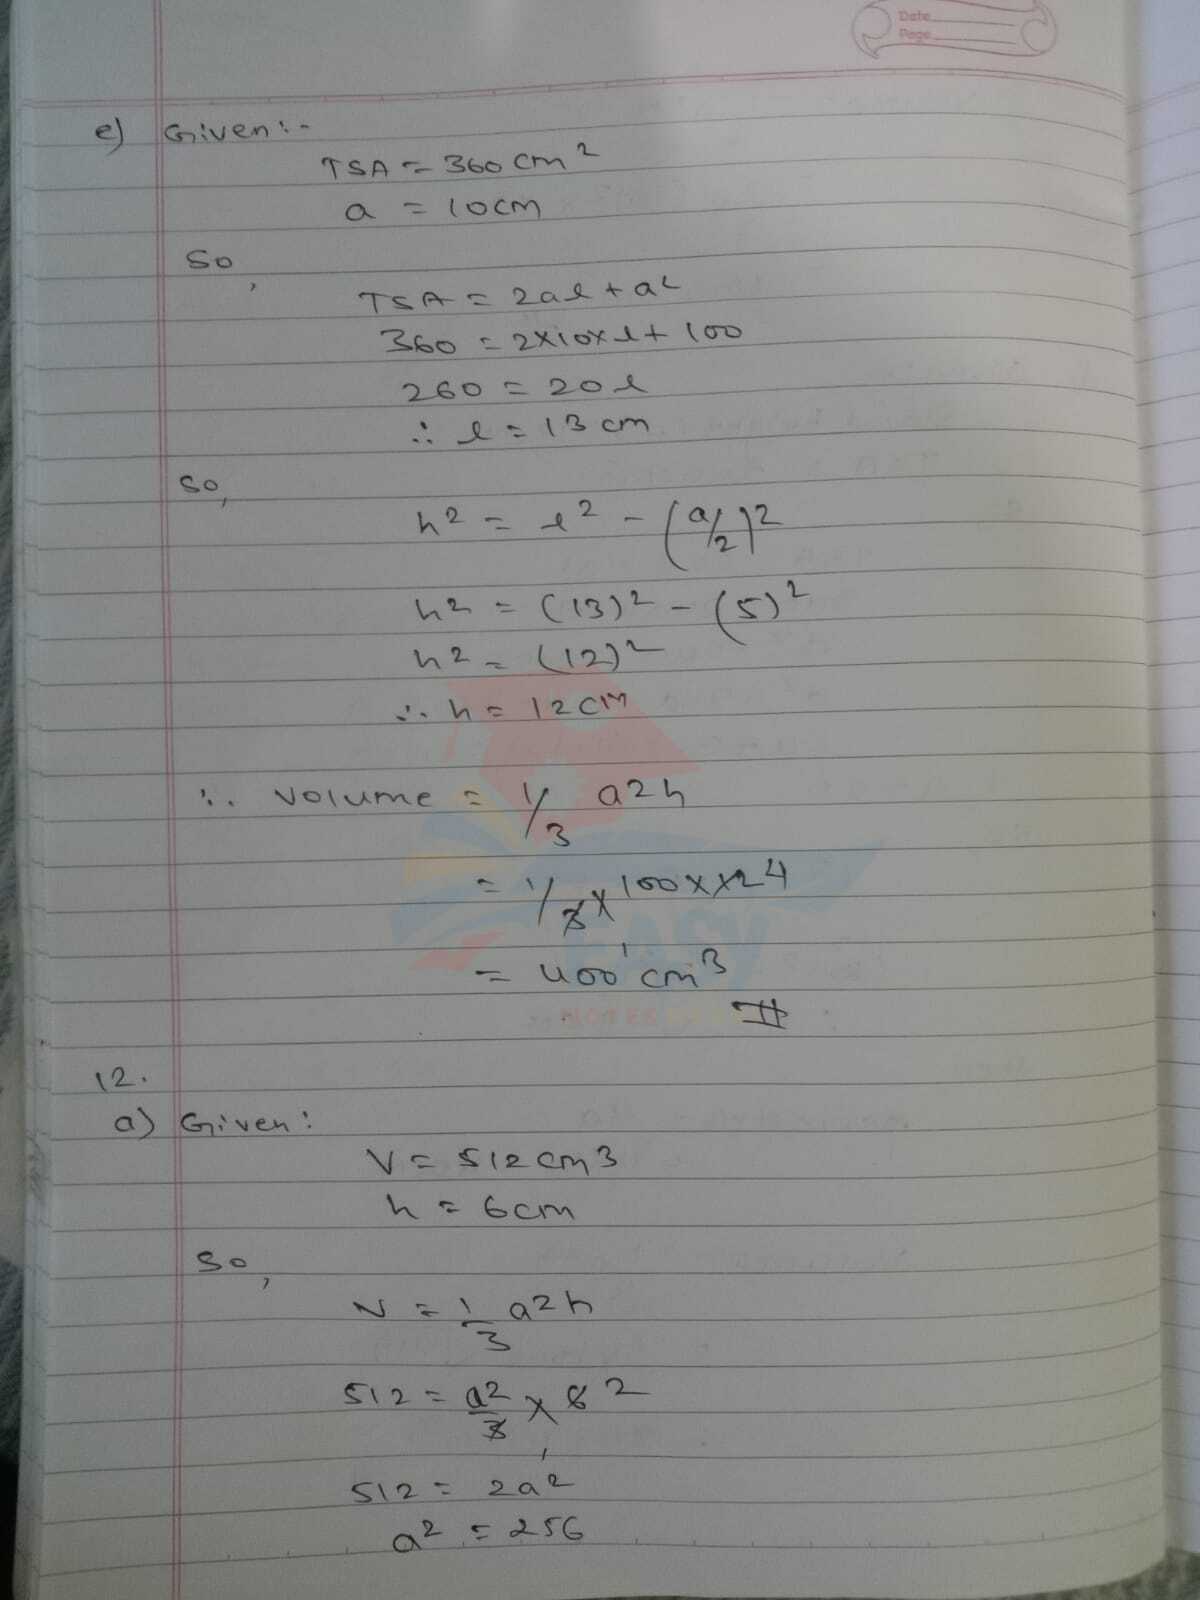 Date
Page
e) Given:-
TSA = 360 cm²
a = 10cm
So,
TSA = 2al + a²
360 = 2×10×l + 100
260 = 20l
∴ l = 13 cm
So,
h² = l² - (a/2)²
h² = (13)² - (5)²
h² = (12)²
∴ h = 12 cm
∴ volume = 1/3 a2h
= 1/3 × 100 × 12 4
= 400 cm³
EASY
12.
a) Given:
V = 512 cm3
h = 6cm
So,
V = 1/3 a2h
512 = a2/3 × 6 2
512 = 2a²
a² = 256